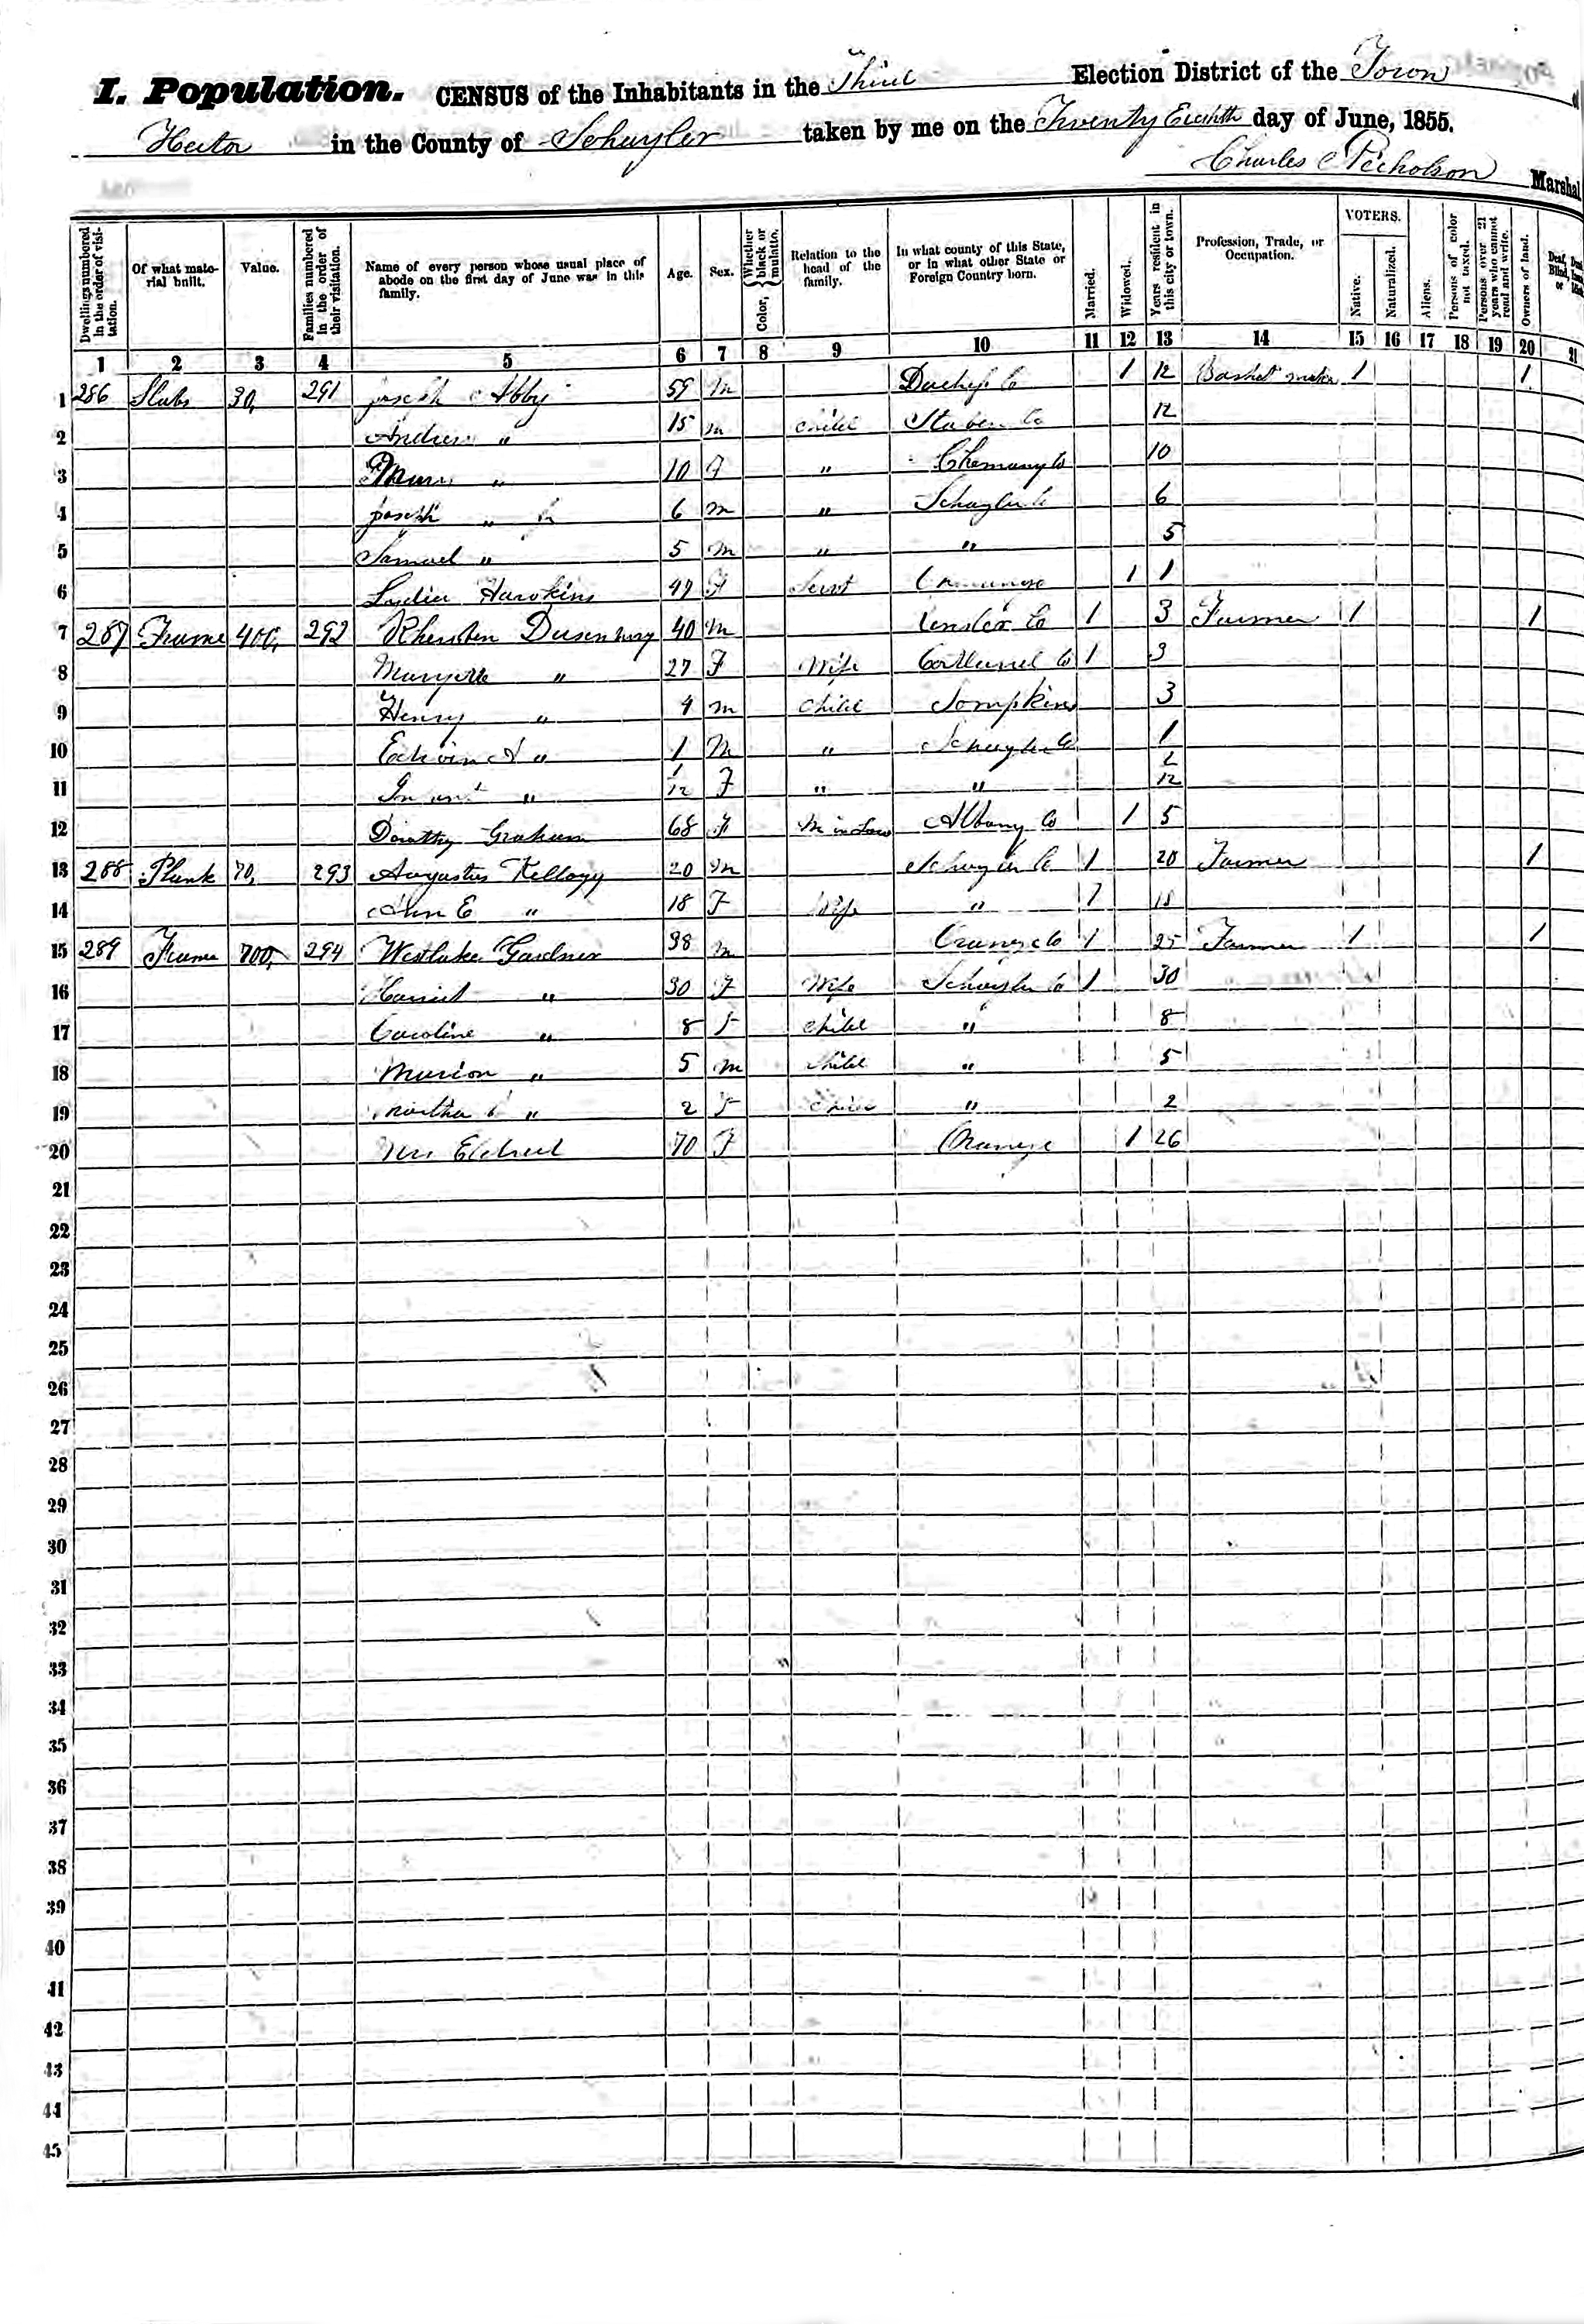 I. Population. CENSUS of the Inhabitants in the Third Election District of the Town of
Hector in the County of Schuyler taken by me on the Twenty Eighth day of June, 1855.
Charles Nicholson Marshal
Dwellings numbered in the order of visitation. Of what material built. Value. Families numbered in the order of their visitation. Name of every person whose usual place of abode on the first day of June was in this family. Age. Sex. Color, Whether black or mulatto. Relation to the head of the family. In what county of this State, or in what other State or Foreign Country born. Married. Widowed. Years resident in this city or town. Profession, Trade, or Occupation. VOTERS. Native. Naturalized. Aliens. Persons of color not taxed. Persons over 21 years who cannot read and write. Owners of land.
1 2 3 4 5 6 7 8 9 10 11 12 13 14 15 16 17 18 19 20 21
1 286 Slabs 30, 291 Joseph Abby 59 M Duchess Co 1 12 Basket maker 1 1
2 Andrew " 15 M child Stuben Co 12
3 " 10 F " Chemung Co 10
4 Joseph " Jr 6 M " Schuyler Co 6
5 Samuel " 5 M " " 5
6 Lydia Hawkins 49 F Servt 1 1
7 287 Frame 400, 292 Dusenbury 40 M Co 1 3 Farmer 1 1
8 " 27 F Wife Cortland Co 1 3
9 Henry " 4 M child Tompkins 3
10 Edwin A " 1 M " Schuyler Co 1
11 Infant " 1/12 F " " 1/12
12 Dorothy Graham 68 F M in Law Albany Co 1 5
13 288 Plank 70, 293 Augustus Kellogg 20 M Schuyler Co 1 20 Farmer 1
14 Ann E " 18 F Wife " 1 18
15 289 Frame 700, 294 Westlake Gardner 38 M Orange Co 1 25 Farmer 1 1
16 Harriet " 30 F Wife Schuyler Co 1 30
17 Caroline " 8 F child " 8
18 Marion " 5 M child " 5
19 Martha " 2 F child " 2
20 Mrs Eldred 70 F Orange 1 26
21
22
23
24
25
26
27
28
29
30
31
32
33
34
35
36
37
38
39
40
41
42
43
44
45